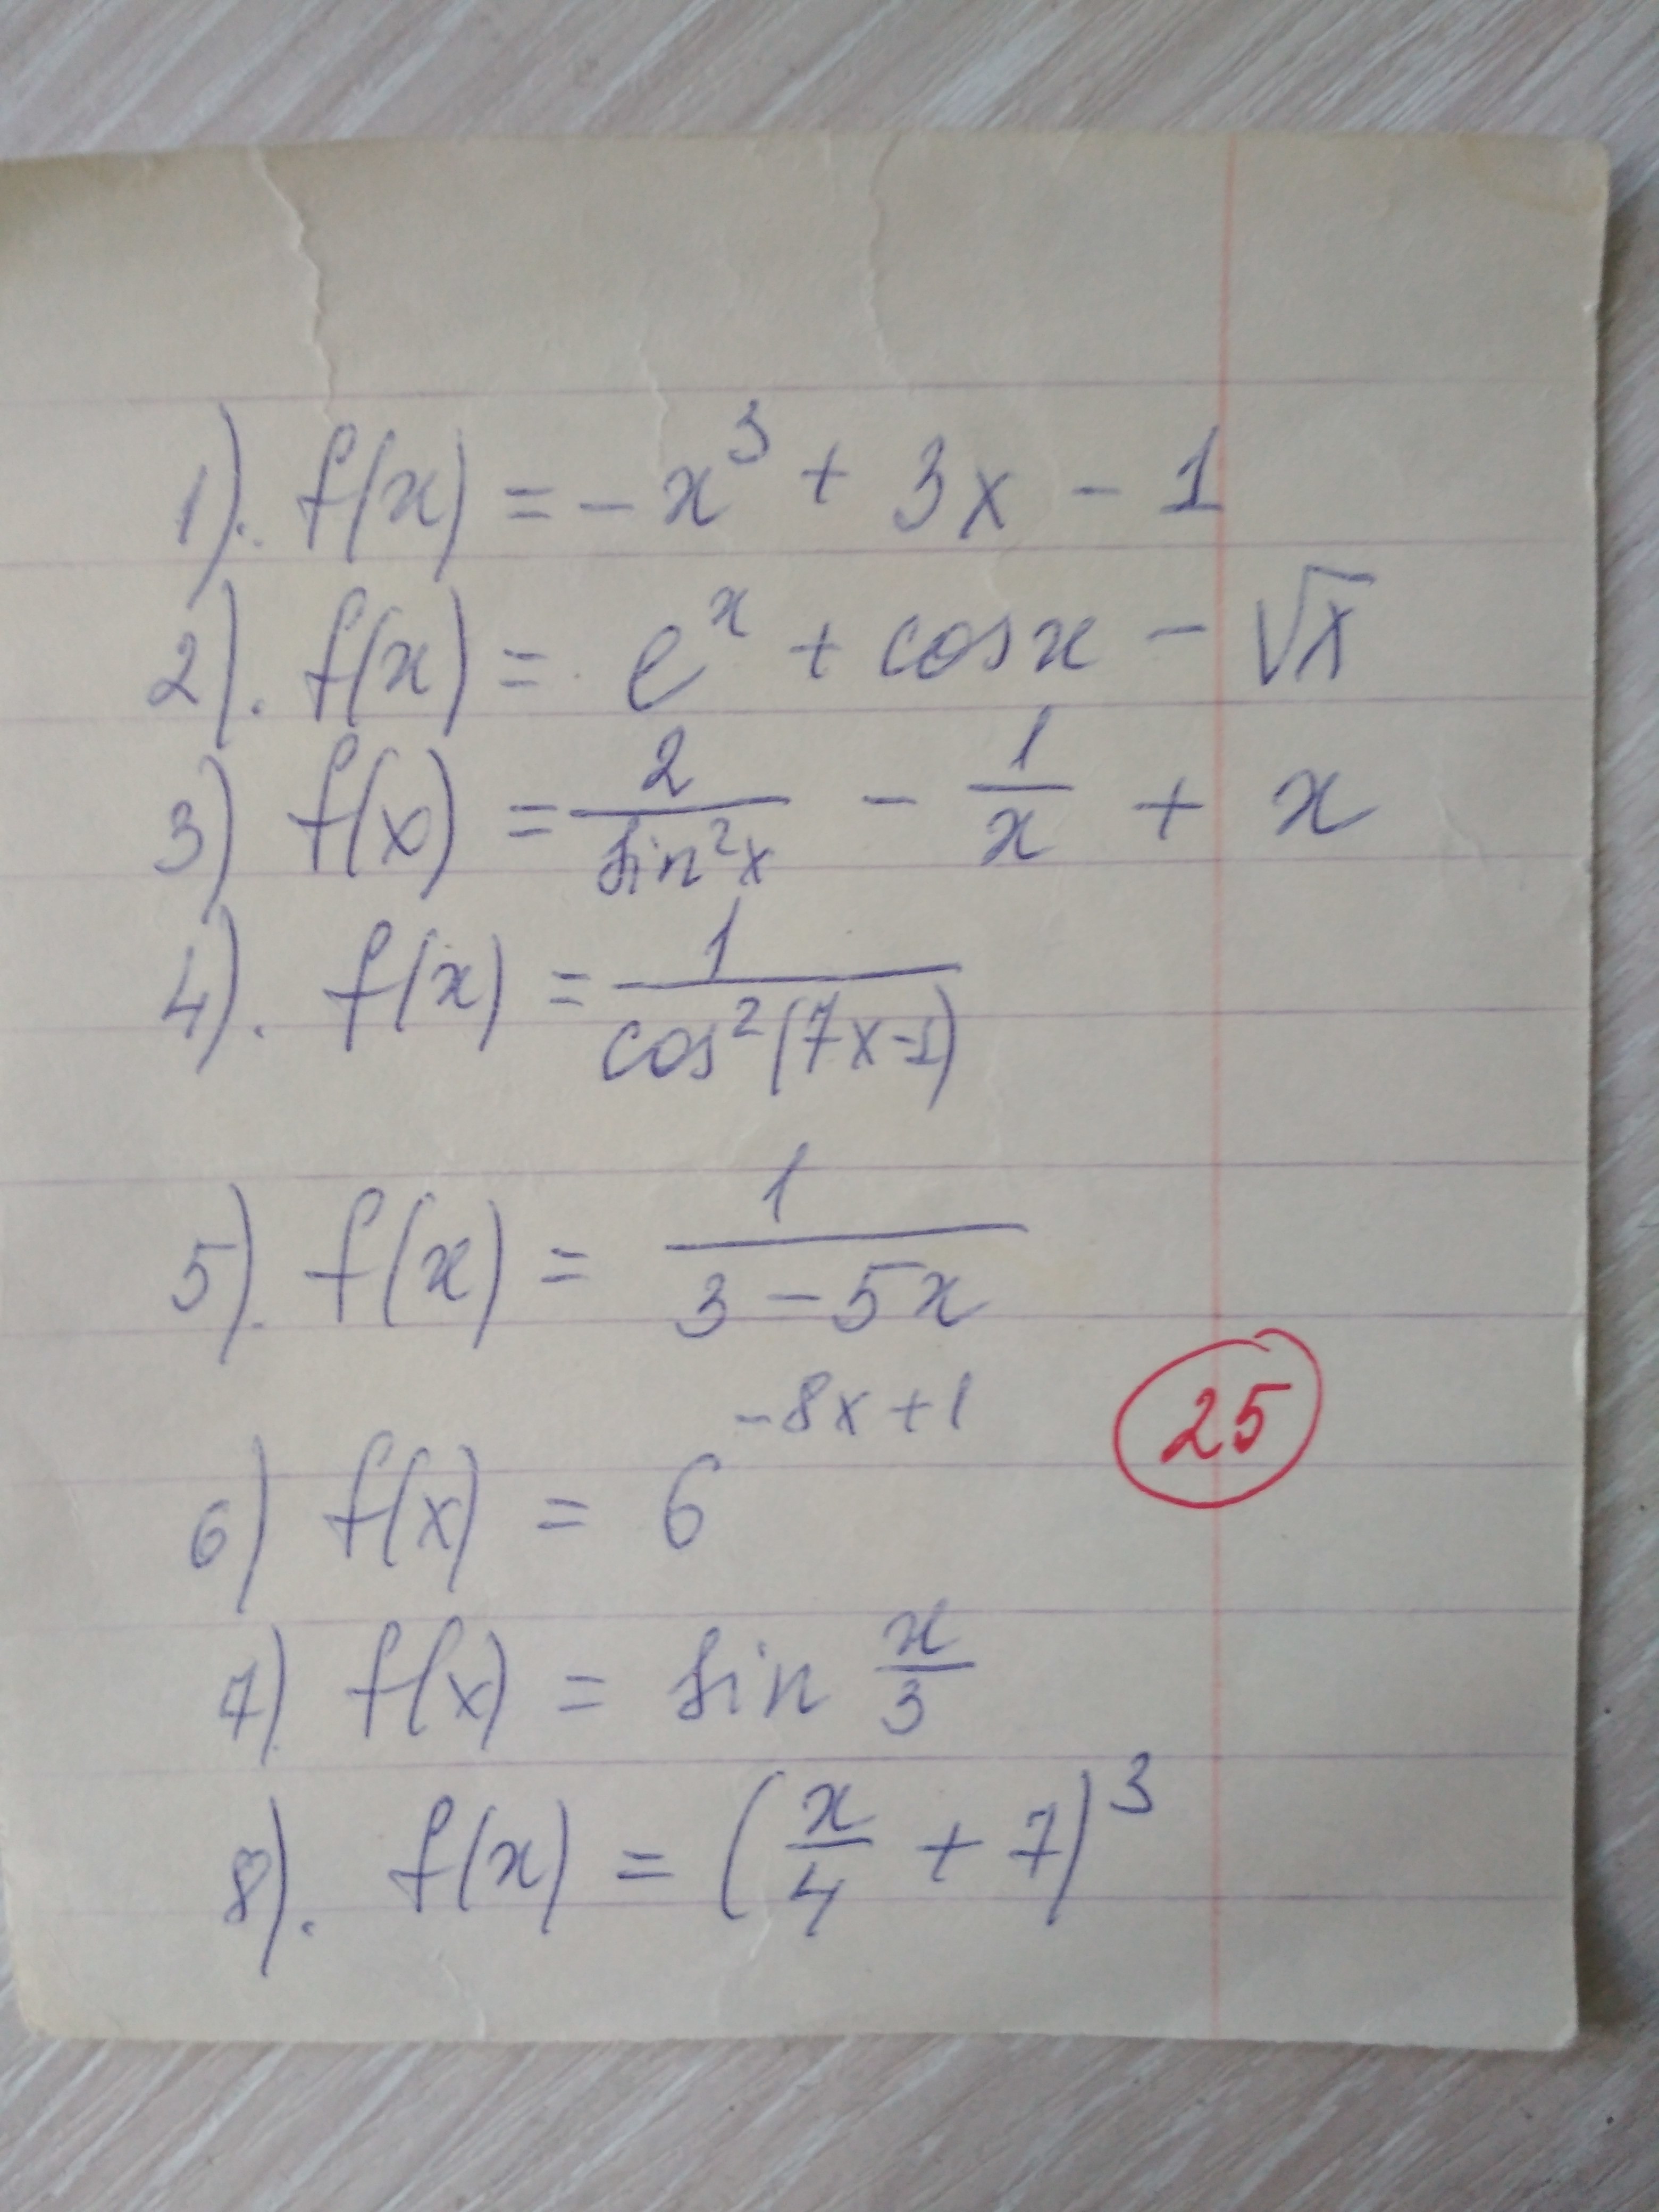 1). f(x) = -x³ + 3x - 1
2). f(x) = e^x + cos x - √x
3) f(x) = 2/sin²x - 1/x + x
4). f(x) = 1/cos²(7x-1)
5). f(x) = 1/(3-5x)
6) f(x) = 6^(-8x+1)
25
7) f(x) = sin x/3
8). f(x) = (x/4 + 7)³